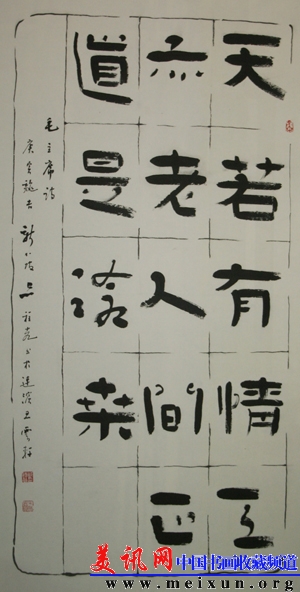 天若有情天
亦老人間正
道是沧桑
毛主席诗
庚寅
美讯网
中国书画收藏频道
www.meixun.org